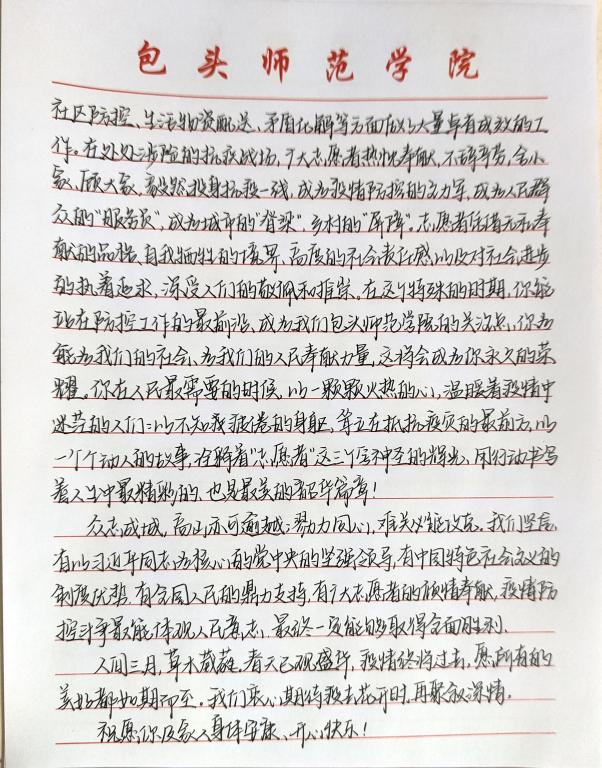 包头师范学院
社区防控、生活物资配送、矛盾化解等方面做了大量卓有成效的工
作。在处处涉险的抗疫战场，广大志愿者热忱奉献，不辞辛劳，舍小
家、顾大家，毅然投身抗疫一线，成为疫情防控的主力军，成为人民群
众的“服务员”，成为城市的“脊梁”，乡村的“屏障”。志愿者凭借无私奉
献的品格、自我牺牲的境界、高度的社会责任感以及对社会进步
的执着追求，深受人们的敬佩和推崇。在这个特殊的时期，你能
站在防控工作的最前沿，成为我们包头师范学院的关注点，你为
能为我们的社会、为我们的人民奉献力量，这将会成为你永久的荣
耀。你在人民最需要的时候，以一颗颗火热的心，温暖着疫情中
迷茫的人们；以不知疲倦的身躯，耸立在抵抗疫灾的最前方，以
一个个动人的故事，诠释着“志愿者”这三个字神圣的辉光，用行动书写
着人生中最精彩的，也是最美的韶华篇章！
众志成城，高山亦可逾越；勠力同心，难关必能攻克。我们坚信，
有以习近平同志为核心的党中央的坚强领导，有中国特色社会主义的
制度优势，有全国人民的鼎力支持，有广大志愿者的倾情奉献，疫情防
控斗争最能体现人民意志，最终一定能够取得全面胜利。
人间三月，草木葳蕤，春天已现盛华，疫情终将过去，愿所有的
美好都如期而至。我们衷心期待疫去花开时，再聚叙深情。
祝愿你及家人身体安康、开心快乐！